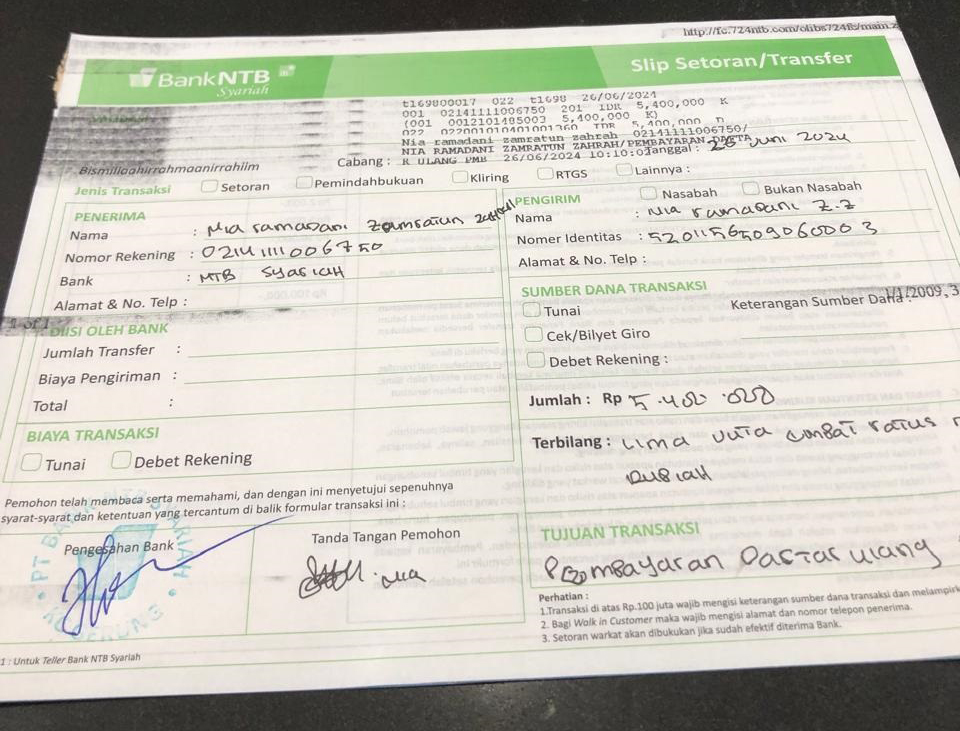 http://fc.724ntb.com/olibs724fb/main.z
BankNTB
Syariah
Slip Setoran/Transfer
t169800017 022 t1698 26/06/2024
001 02141111006750 201 IDR 5,400,000 K
(001 0012101485003 5,400,000 K)
022 022001010401001360 IDR 5,400,000 D
Nia ramadani zamratun zahrah 02141111006750/
NIA RAMADANI ZAMRATUN ZAHRAH/PEMBAYARAN DAFTA
R ULANG PMB 26/06/2024 10:10:03
Bismillaahirrahmaanirrahiim
Cabang :
Tanggal : 26 Juni 2024
Jenis Transaksi
Setoran
Pemindahbukuan
Kliring
RTGS
Lainnya :
PENERIMA
Nama : Nia ramadani Zamratun zahrah
Nomor Rekening : 02141111006750
Bank : NTB Syariah
Alamat & No. Telp :
PENGIRIM
Nasabah
Bukan Nasabah
Nama : Nia ramadani Z.Z
Nomer Identitas : 5201156509060003
Alamat & No. Telp :
1 of 1
DIISI OLEH BANK
Jumlah Transfer :
Biaya Pengiriman :
Total :
SUMBER DANA TRANSAKSI
Tunai
Keterangan Sumber Dana :
1/1/2009, 3
Cek/Bilyet Giro
Debet Rekening :
BIAYA TRANSAKSI
Tunai
Debet Rekening
Jumlah : Rp 5.400.000
Terbilang : Lima Juta empat ratus
rubiah
Pemohon telah membaca serta memahami, dan dengan ini menyetujui sepenuhnya
syarat-syarat dan ketentuan yang tercantum di balik formular transaksi ini :
Pengesahan Bank
Tanda Tangan Pemohon
Nia
TUJUAN TRANSAKSI
Pembayaran Daftar ulang
Perhatian :
1.Transaksi di atas Rp.100 juta wajib mengisi keterangan sumber dana transaksi dan melampirk
2. Bagi Walk in Customer maka wajib mengisi alamat dan nomor telepon penerima.
3. Setoran warkat akan dibukukan jika sudah efektif diterima Bank.
1 : Untuk Teller Bank NTB Syariah